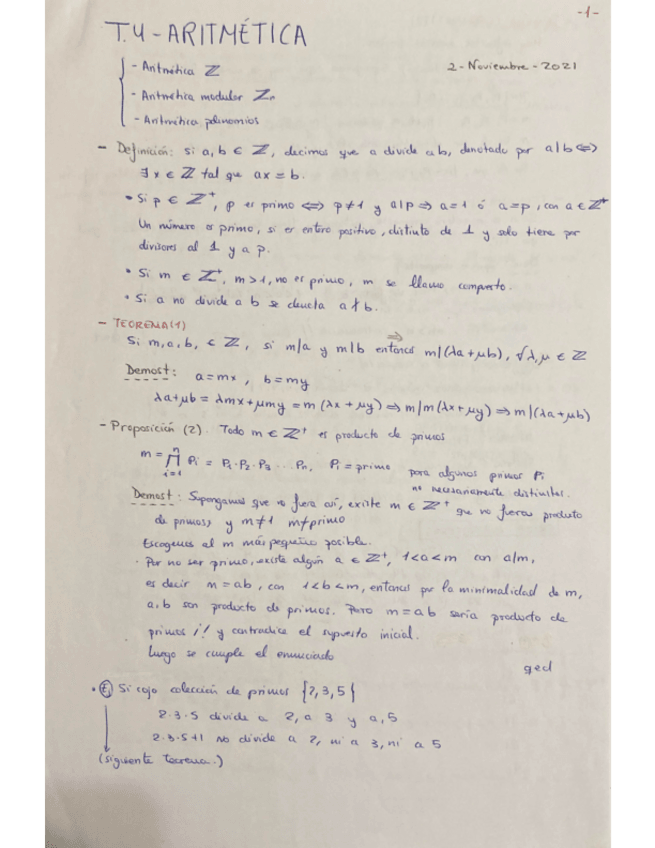 -1-
T.4-ARITMÉTICA
- Aritmética ℤ
2-Noviembre-2021
- Aritmética modular ℤn
- Aritmética polinomios
- Definición: si a, b ∈ ℤ, decimos que a divide a b, denotado por a|b ⟺
∃ x ∈ ℤ tal que ax = b.
• Si p ∈ ℤ⁺, p es primo ⟺ p≠1 y a|p ⟹ a=1 ó a=p, con a ∈ ℤ⁺
Un número es primo, si es entero positivo, distinto de 1 y solo tiene por
divisores al 1 y a p.
• Si m ∈ ℤ⁺, m>1, no es primo, m se llama compuesto.
• Si a no divide a b se denota a ∤ b.
- TEOREMA(1)
Si m, a, b, ∈ ℤ, si m/a y m/b entonces ⟹ m/(λa+μb), ∀λ,μ ∈ ℤ
Demost:
a=mx, b=my
λa+μb = λmx+μmy = m(λx+μy) ⟹ m|m(λx+μy) ⟹ m|(λa+μb)
- Proposición (2). Todo m ∈ ℤ⁺ es producto de primos
m = ∏ⁿᵢ₌₁ Pi = P₁·P₂·P₃ ... Pn, Pi = primo para algunos primos Pi
no necesariamente distintos.
Demost: Supongamos que no fuera así, existe m ∈ ℤ⁺ que no fuera producto
de primos, y m≠1 m≠primo
Escogemos el m más pequeño posible.
· Por no ser primo, existe algún a ∈ ℤ⁺, 1<a<m con a/m,
es decir m=ab, con 1<b<m, entonces por la minimalidad de m,
a, b son producto de primos. Pero m=ab sería producto de
primos ¡! y contradice el supuesto inicial.
Luego se cumple el enunciado
qed
• Ej Si cojo colección de primos {2,3,5}
2·3·5 divide a 2, a 3 y a, 5
2·3·5+1 no divide a 2, ni a 3, ni a 5
(siguiente teorema.)